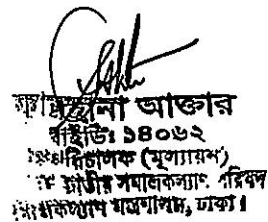 আক্তার
আইডিঃ ১৪০৬২
(মূল্যায়ন)
জাতীয় সমাজকল্যাণ পরিষদ
সমাজকল্যাণ মন্ত্রণালয়, ঢাকা।